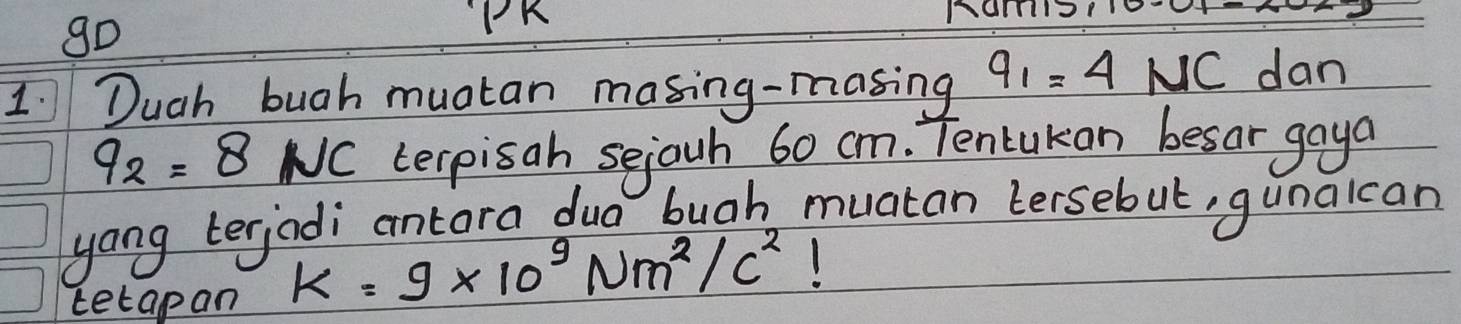 9D PK
1. Duah buah muatan masing-masing q1 = 4 NC dan
q2 = 8 NC terpisah sejauh 60 cm. Tentukan besar gaya
yang terjadi antara dua buah muatan tersebut, gunakan
tetapan K = 9 × 10⁹ Nm²/C² !